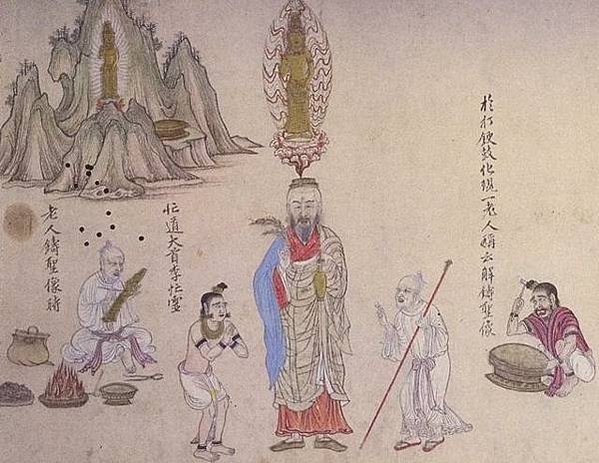 於打鼓化現一老人稱云解鑄聖像
忙道大首李忙靈
老人鑄聖像時